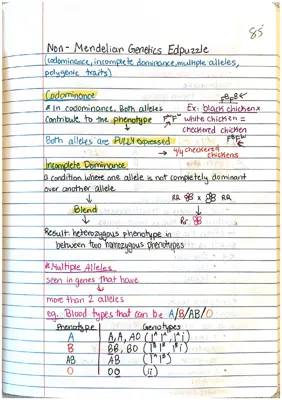 85
Non-Mendelian Genetics Edpuzzle
(codominance, incomplete dominance, multiple alleles,
polygenic traits)
Codominance
* In codominance, Both alleles
contribute to the phenotype
Ex: black chicken x
white chicken =
checkered chicken
Both alleles are FULLY expressed
→ 4/4 checkered
chickens
Incomplete Dominance
a condition where one allele is not completely dominant
over another allele
↓
Blend
↓
RR x RR
↓
Rr
Result: heterozygous phenotype in
between two homozygous phenotypes
* Multiple Alleles
seen in genes that have
↓
more than 2 alleles
eg. Blood types that can be A/B/AB/O
Phenotype Genotypes
A A,A, AO (Iᴬ Iᴬ, Iᴬ i)
B BB, BO (Iᴮ Iᴮ, Iᴮ i)
AB AB (Iᴬ Iᴮ)
O OO (ii)